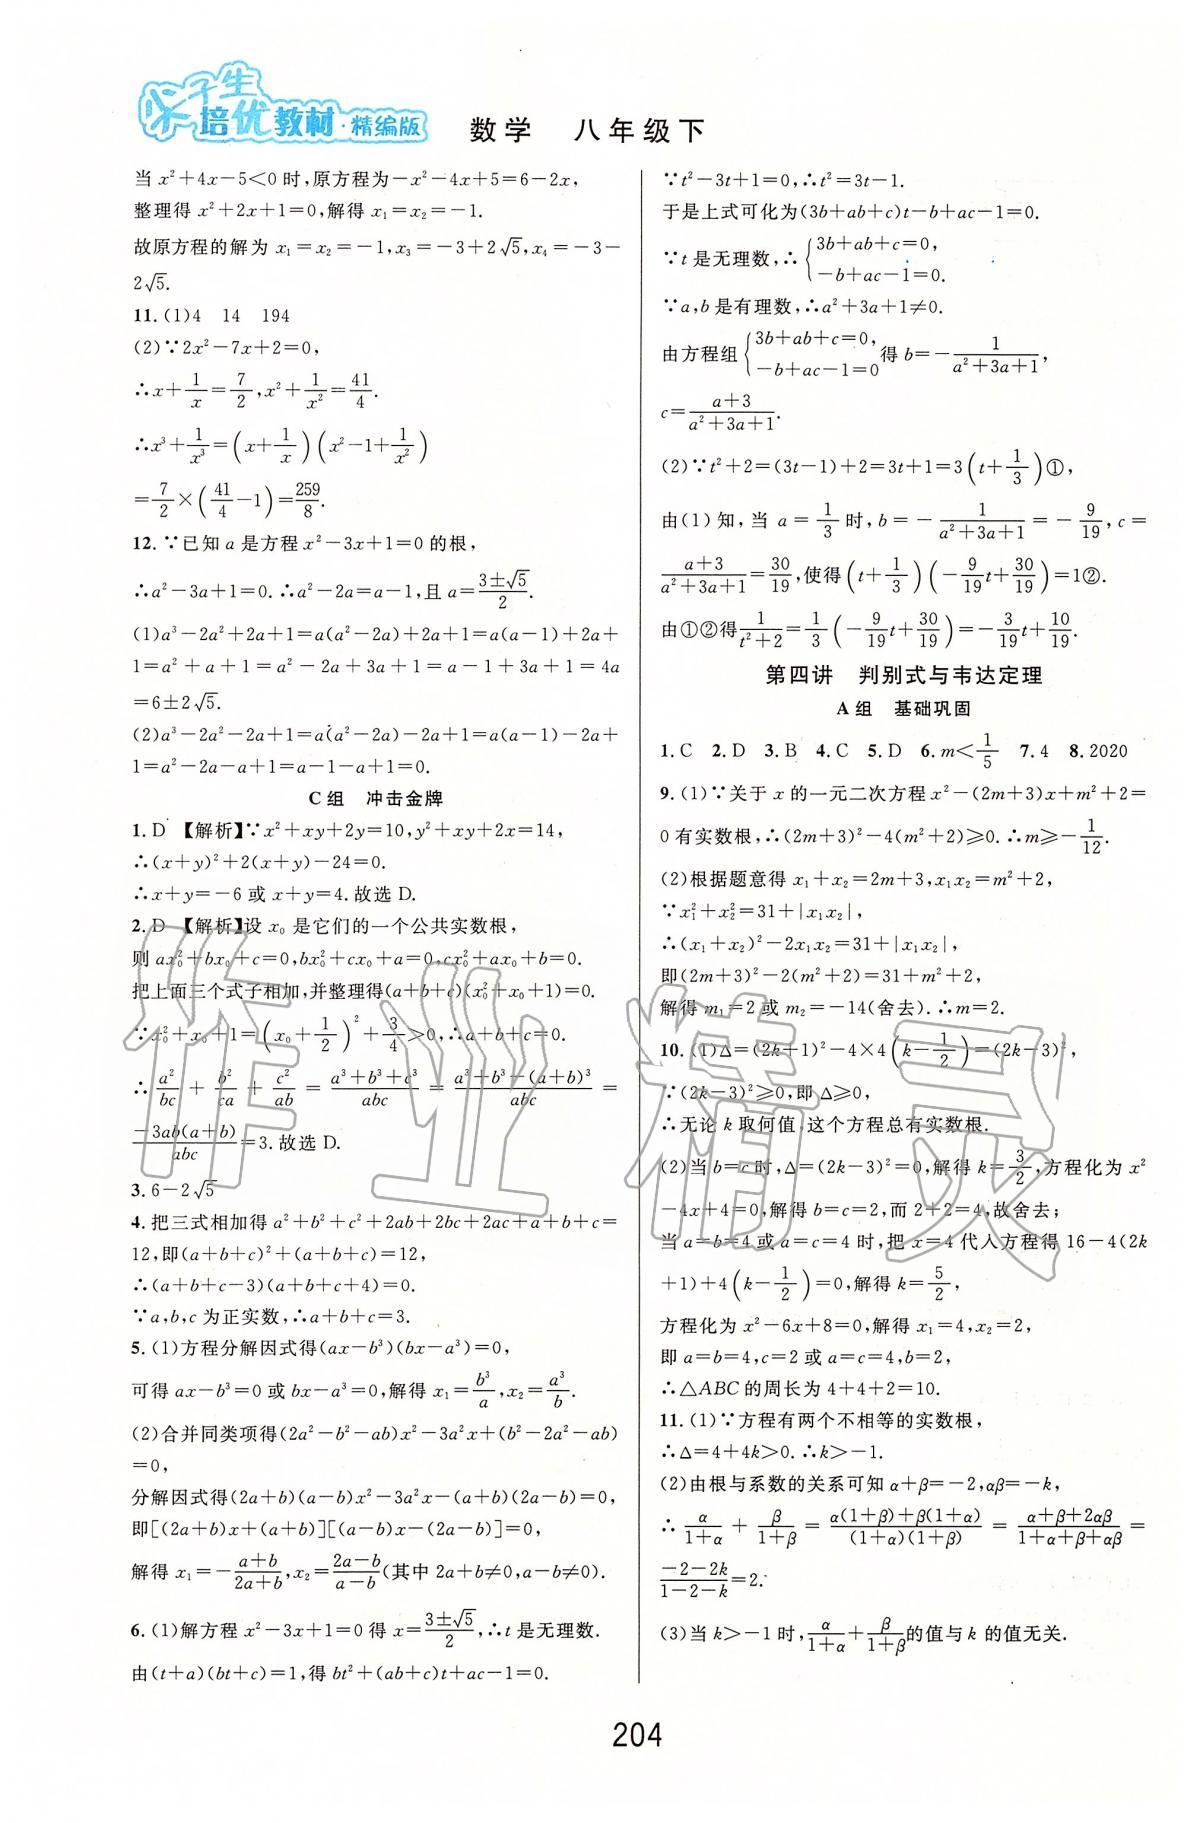 尖子生
培优教材·精编版
数学 八年级下
当x²+4x-5<0时,原方程为-x²-4x+5=6-2x,
整理得x²+2x+1=0,解得x₁=x₂=-1.
故原方程的解为x₁=x₂=-1,x₃=-3+2√5,x₄=-3-
2√5.
11.(1)4 14 194
(2)∵2x²-7x+2=0,
∴x+1/x=7/2,x²+1/x²=41/4.
∴x³+1/x³=(x+1/x)(x²-1+1/x²)
=7/2×(41/4-1)=259/8.
12.∵已知a是方程x²-3x+1=0的根,
∴a²-3a+1=0.∴a²-2a=a-1,且a=(3±√5)/2.
(1)a³-2a²+2a+1=a(a²-2a)+2a+1=a(a-1)+2a+
1=a²+a+1=a²-2a+3a+1=a-1+3a+1=4a
=6±2√5.
(2)a³-2a²-2a+1=a(a²-2a)-2a+1=a(a-1)-2a+
1=a²-2a-a+1=a-1-a+1=0.
C组 冲击金牌
1.D 【解析】∵x²+xy+2y=10,y²+xy+2x=14,
∴(x+y)²+2(x+y)-24=0.
∴x+y=-6或x+y=4.故选D.
2.D 【解析】设x₀是它们的一个公共实数根,
则ax₀²+bx₀+c=0,bx₀²+cx₀+a=0,cx₀²+ax₀+b=0.
把上面三个式子相加,并整理得(a+b+c)(x₀²+x₀+1)=0.
∵x₀²+x₀+1=(x₀+1/2)²+3/4>0,∴a+b+c=0.
∴a²/bc+b²/ca+c²/ab=(a³+b³+c³)/abc=(a³+b³-(a+b)³)/abc=
-3ab(a+b)/abc=3.故选D.
3.6-2√5
4.把三式相加得a²+b²+c²+2ab+2bc+2ac+a+b+c=
12,即(a+b+c)²+(a+b+c)=12,
∴(a+b+c-3)(a+b+c+4)=0.
∵a,b,c为正实数,∴a+b+c=3.
5.(1)方程分解因式得(ax-b³)(bx-a³)=0,
可得ax-b³=0或bx-a³=0,解得x₁=b³/a,x₂=a³/b.
(2)合并同类项得(2a²-b²-ab)x²-3a²x+(b²-2a²-ab)
=0,
分解因式得(2a+b)(a-b)x²-3a²x-(a+b)(2a-b)=0,
即[(2a+b)x+(a+b)][(a-b)x-(2a-b)]=0,
解得x₁=-(a+b)/(2a+b),x₂=(2a-b)/(a-b)(其中2a+b≠0,a-b≠0).
6.(1)解方程x²-3x+1=0得x=(3±√5)/2,∴t是无理数.
由(t+a)(bt+c)=1,得bt²+(ab+c)t+ac-1=0.
∵t²-3t+1=0,∴t²=3t-1.
于是上式可化为(3b+ab+c)t-b+ac-1=0.
∵t是无理数,∴{3b+ab+c=0,
-b+ac-1=0.
∵a,b是有理数,∴a²+3a+1≠0.
由方程组{3b+ab+c=0,
-b+ac-1=0 得b=-1/(a²+3a+1),
c=(a+3)/(a²+3a+1).
(2)∵t²+2=(3t-1)+2=3t+1=3(t+1/3)①,
由(1)知,当a=1/3时,b=-1/(a²+3a+1)=-9/19,c=
(a+3)/(a²+3a+1)=30/19,使得(t+1/3)(-9/19t+30/19)=1②.
由①②得1/(t²+2)=1/3(-9/19t+30/19)=-3/19t+10/19.
第四讲 判别式与韦达定理
A组 基础巩固
1.C 2.D 3.B 4.C 5.D 6.m<1/5 7.4 8.2020
9.(1)∵关于x的一元二次方程x²-(2m+3)x+m²+2=
0有实数根,∴(2m+3)²-4(m²+2)≥0.∴m≥-1/12.
(2)根据题意得x₁+x₂=2m+3,x₁x₂=m²+2,
∵x₁²+x₂²=31+|x₁x₂|,
∴(x₁+x₂)²-2x₁x₂=31+|x₁x₂|,
即(2m+3)²-2(m²+2)=31+m²+2,
解得m₁=2或m₂=-14(舍去).∴m=2.
10.(1)Δ=(2k+1)²-4×4(k-1/2)=(2k-3)²,
∵(2k-3)²≥0,即Δ≥0,
∴无论k取何值,这个方程总有实数根.
(2)当b=c时,Δ=(2k-3)²=0,解得k=3/2,方程化为x²
-4x+4=0,解得b=c=2,而2+2=4,故舍去;
当a=b=4或a=c=4时,把x=4代入方程得16-4(2k
+1)+4(k-1/2)=0,解得k=5/2,
方程化为x²-6x+8=0,解得x₁=4,x₂=2,
即a=b=4,c=2或a=c=4,b=2,
∴△ABC的周长为4+4+2=10.
11.(1)∵方程有两个不相等的实数根,
∴Δ=4+4k>0.∴k>-1.
(2)由根与系数的关系可知α+β=-2,αβ=-k,
∴α/(1+α)+β/(1+β)=(α(1+β)+β(1+α))/((1+α)(1+β))=(α+β+2αβ)/(1+α+β+αβ)=
(-2-2k)/(1-2-k)=2.
(3)当k>-1时,α/(1+α)+β/(1+β)的值与k的值无关.
作业精灵
204